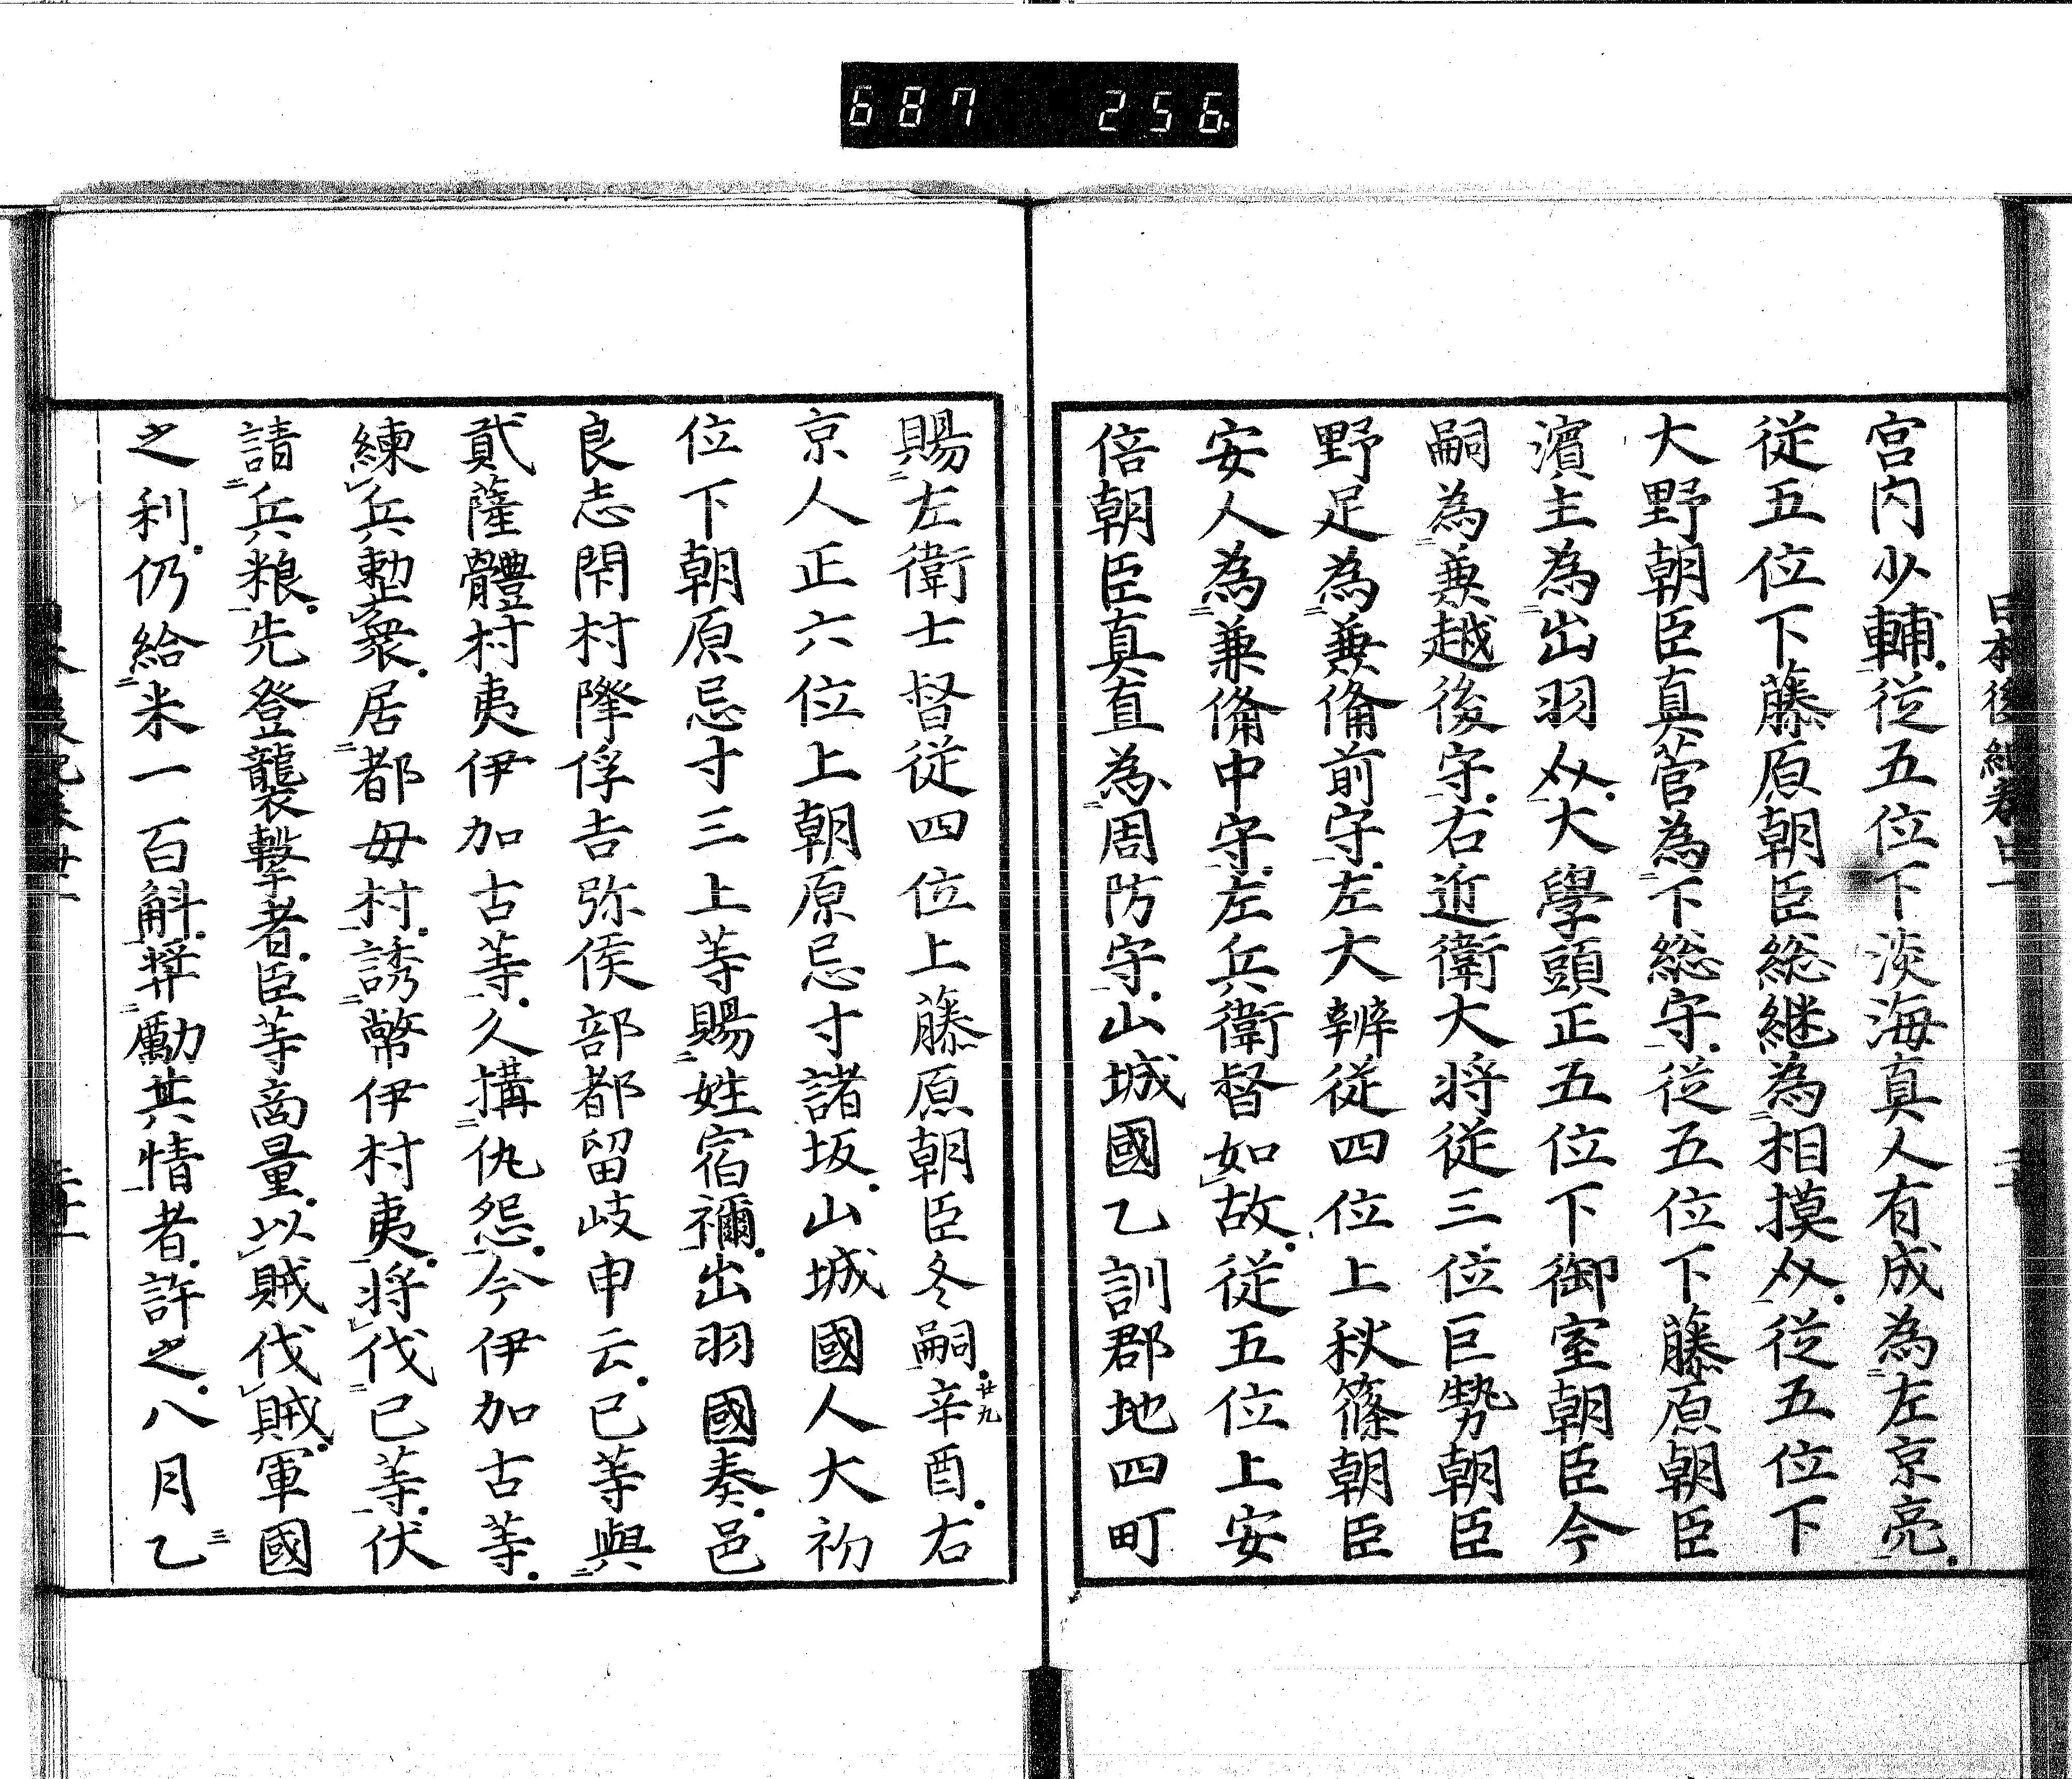 687 256
宮内少輔従五位下淡海真人有成為左京亮
従五位下藤原朝臣総継為相摸介従五位下
大野朝臣真菅為下総守従五位下藤原朝臣
濱主為出羽介大學頭正五位下御室朝臣今
嗣為兼越後守右近衛大将従三位巨勢朝臣
野足為兼備前守左大辨従四位上秋篠朝臣
安人為兼備中守左兵衛督如故従五位上安
倍朝臣真直為周防守山城國乙訓郡地四町
賜左衛士督従四位上藤原朝臣冬嗣辛酉右
廿九
京人正六位上朝原忌寸諸坂山城國人大初
位下朝原忌寸三上等賜姓宿禰出羽國奏邑
良志閇村降俘吉弥侯部都留岐申云已等與
貳薩體村夷伊加古等久搆仇怨今伊加古等
練兵勲衆居都毋村誘幣伊村夷将伐已等伏
請兵粮先登襲撃者臣等商量以賊伐賊軍國
之利仍給米一百斛奨勵其情者許之八月乙
三